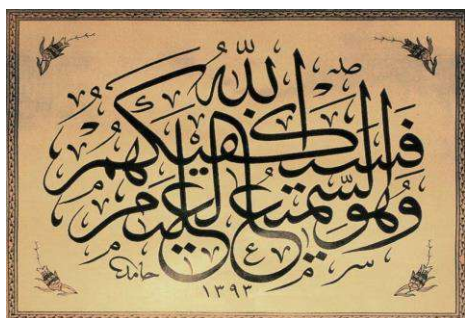 فَسَيَكْفِيكَهُمُ اللّٰهُ
وَهُوَ السَّمِيعُ الْعَلِيمُ
حامد
١٣٩٣